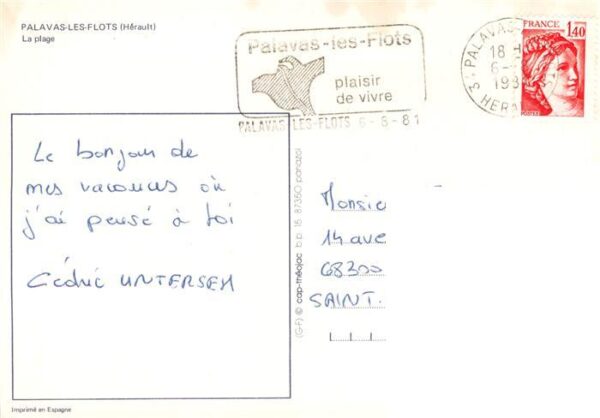 PALAVAS-LES-FLOTS (Hérault)
La plage
Palavas-les-Flots
plaisir
de vivre
PALAVAS-LES-FLOTS 6-8-81
18 H
6-
198
HERA
FRANCE
1,40
Le bonjour de
mes vacances où
j'ai pensé à toi
Cédric UNTERSEH
Monsie
14 ave
68300
SAINT.
(G-F) © cap-théojac b.p. 15 87350 panazol
Imprimé en Espagne